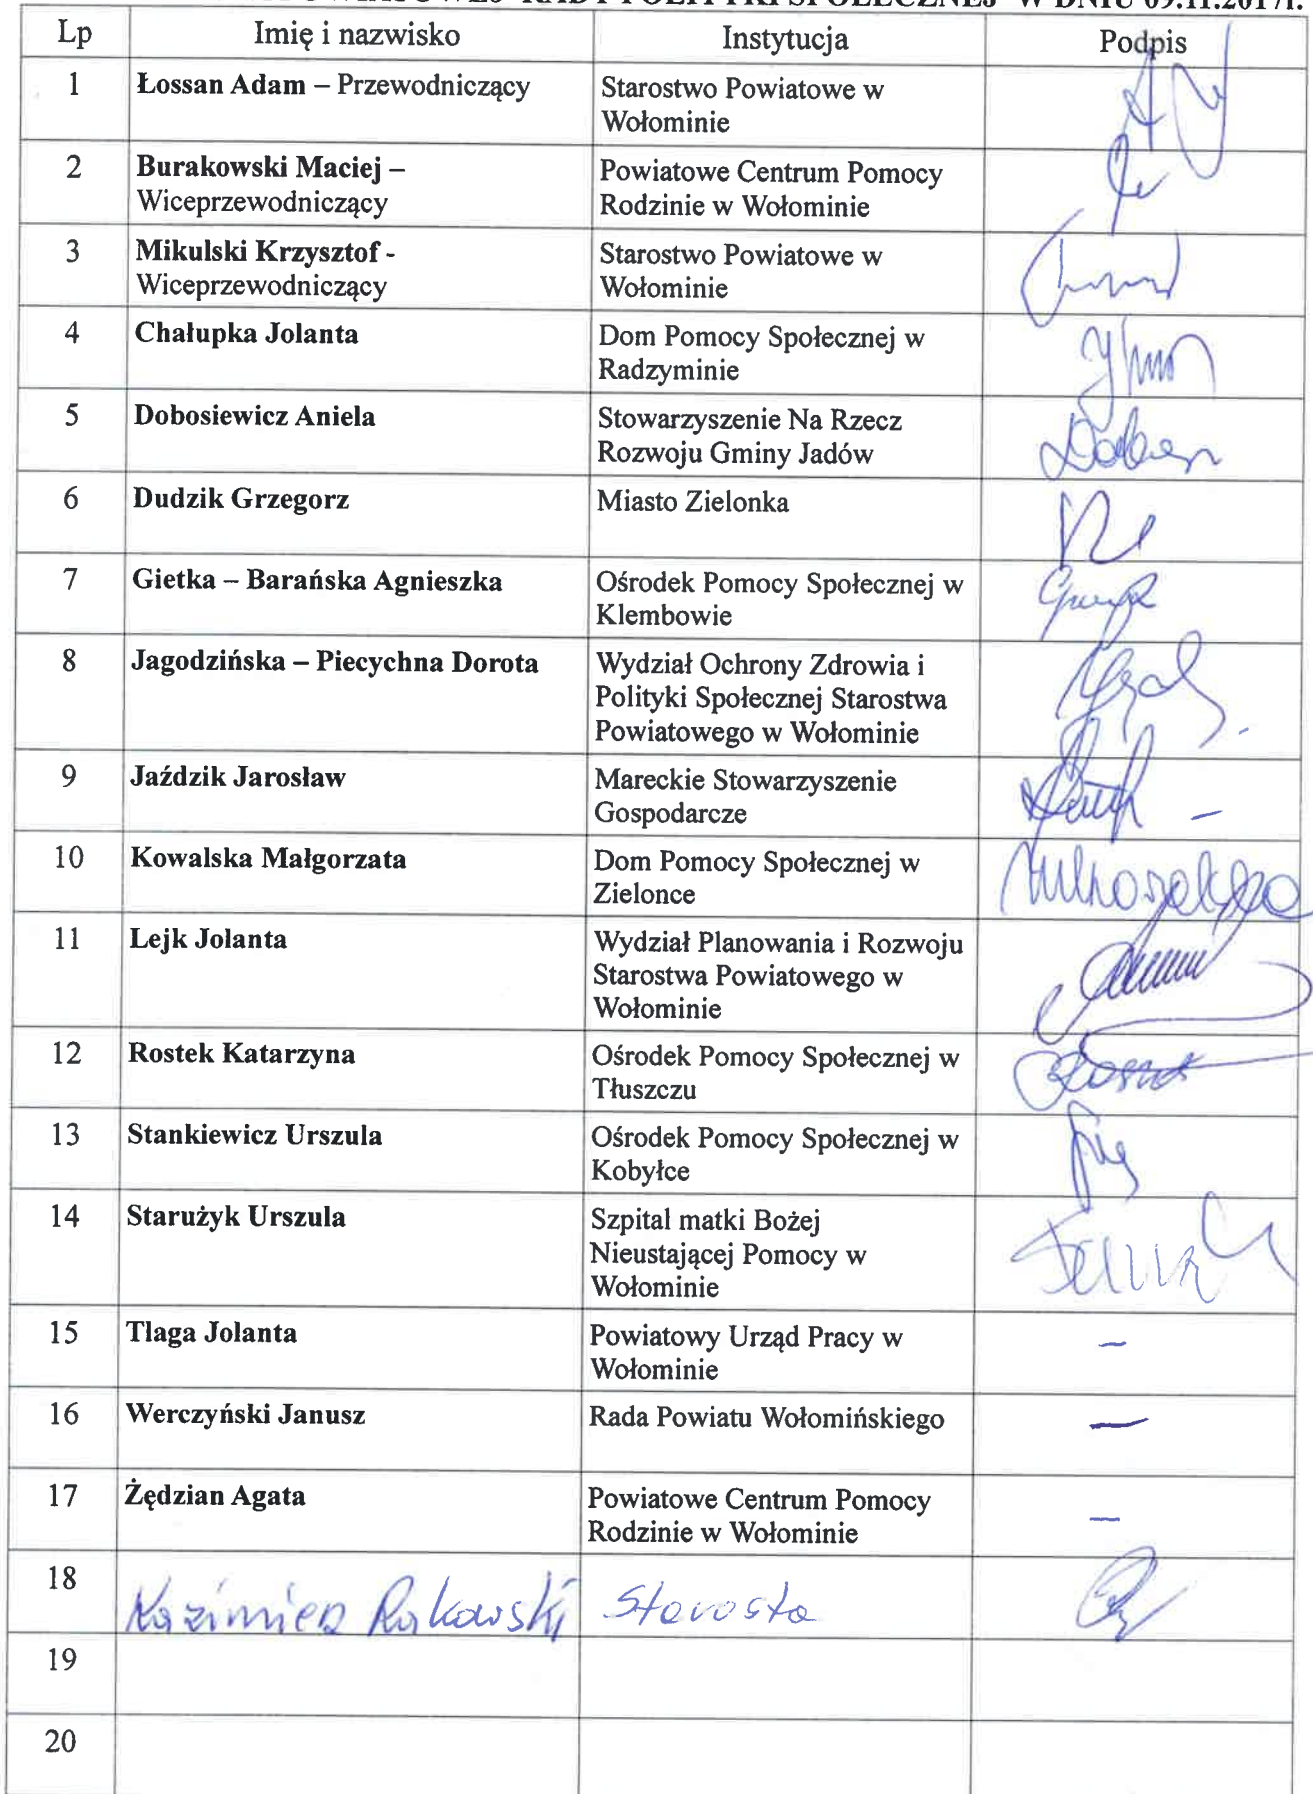 POWIATOWEJ RADY POLITYKI SPOŁECZNEJ W DNIU 09.11.2017r.
Lp Imię i nazwisko Instytucja Podpis
1 Łossan Adam – Przewodniczący Starostwo Powiatowe w
Wołominie
2 Burakowski Maciej – Powiatowe Centrum Pomocy
Wiceprzewodniczący Rodzinie w Wołominie
3 Mikulski Krzysztof - Starostwo Powiatowe w
Wiceprzewodniczący Wołominie
4 Chałupka Jolanta Dom Pomocy Społecznej w
Radzyminie
5 Dobosiewicz Aniela Stowarzyszenie Na Rzecz
Rozwoju Gminy Jadów
6 Dudzik Grzegorz Miasto Zielonka
7 Gietka – Barańska Agnieszka Ośrodek Pomocy Społecznej w
Klembowie
8 Jagodzińska – Piecychna Dorota Wydział Ochrony Zdrowia i
Polityki Społecznej Starostwa
Powiatowego w Wołominie
9 Jaździk Jarosław Mareckie Stowarzyszenie
Gospodarcze –
10 Kowalska Małgorzata Dom Pomocy Społecznej w
Zielonce
11 Lejk Jolanta Wydział Planowania i Rozwoju
Starostwa Powiatowego w
Wołominie
12 Rostek Katarzyna Ośrodek Pomocy Społecznej w
Tłuszczu
13 Stankiewicz Urszula Ośrodek Pomocy Społecznej w
Kobyłce
14 Starużyk Urszula Szpital matki Bożej
Nieustającej Pomocy w
Wołominie
15 Tlaga Jolanta Powiatowy Urząd Pracy w –
Wołominie
16 Werczyński Janusz Rada Powiatu Wołomińskiego –
17 Żędzian Agata Powiatowe Centrum Pomocy
Rodzinie w Wołominie –
18 Kazimierz Rakowski Starosta
19
20